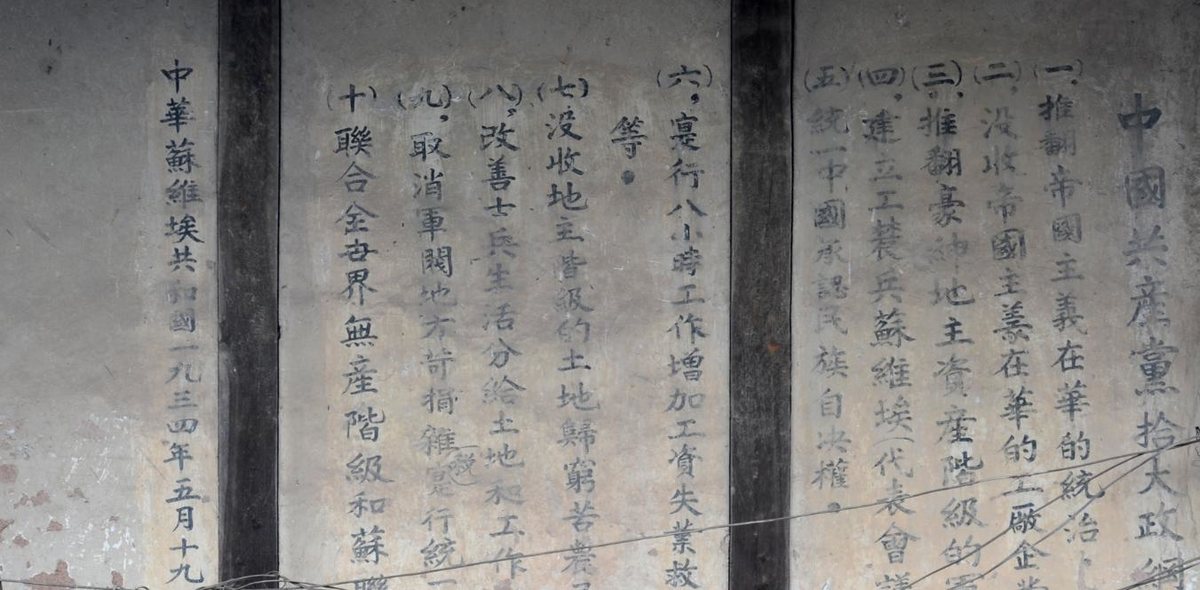 中國共產黨拾大政綱
(一)推翻帝國主義在華的統治
(二)没收帝國主義在華的工廠企業
(三)推翻豪紳地主資產階級的
(四)建立工農兵蘇維埃代表會議
(五)統一中國承認民族自决權。
(六)寔行八小時工作增加工資失業救
等。
(七)没收地主皆級的土地歸窮苦農
(八)改善士兵生活分給土地和工作
(九)取消軍閥地方苛捐雜税寔行統一
(十)聯合全世界無產階級和蘇聯
中華蘇維埃共和國一九三四年五月十九